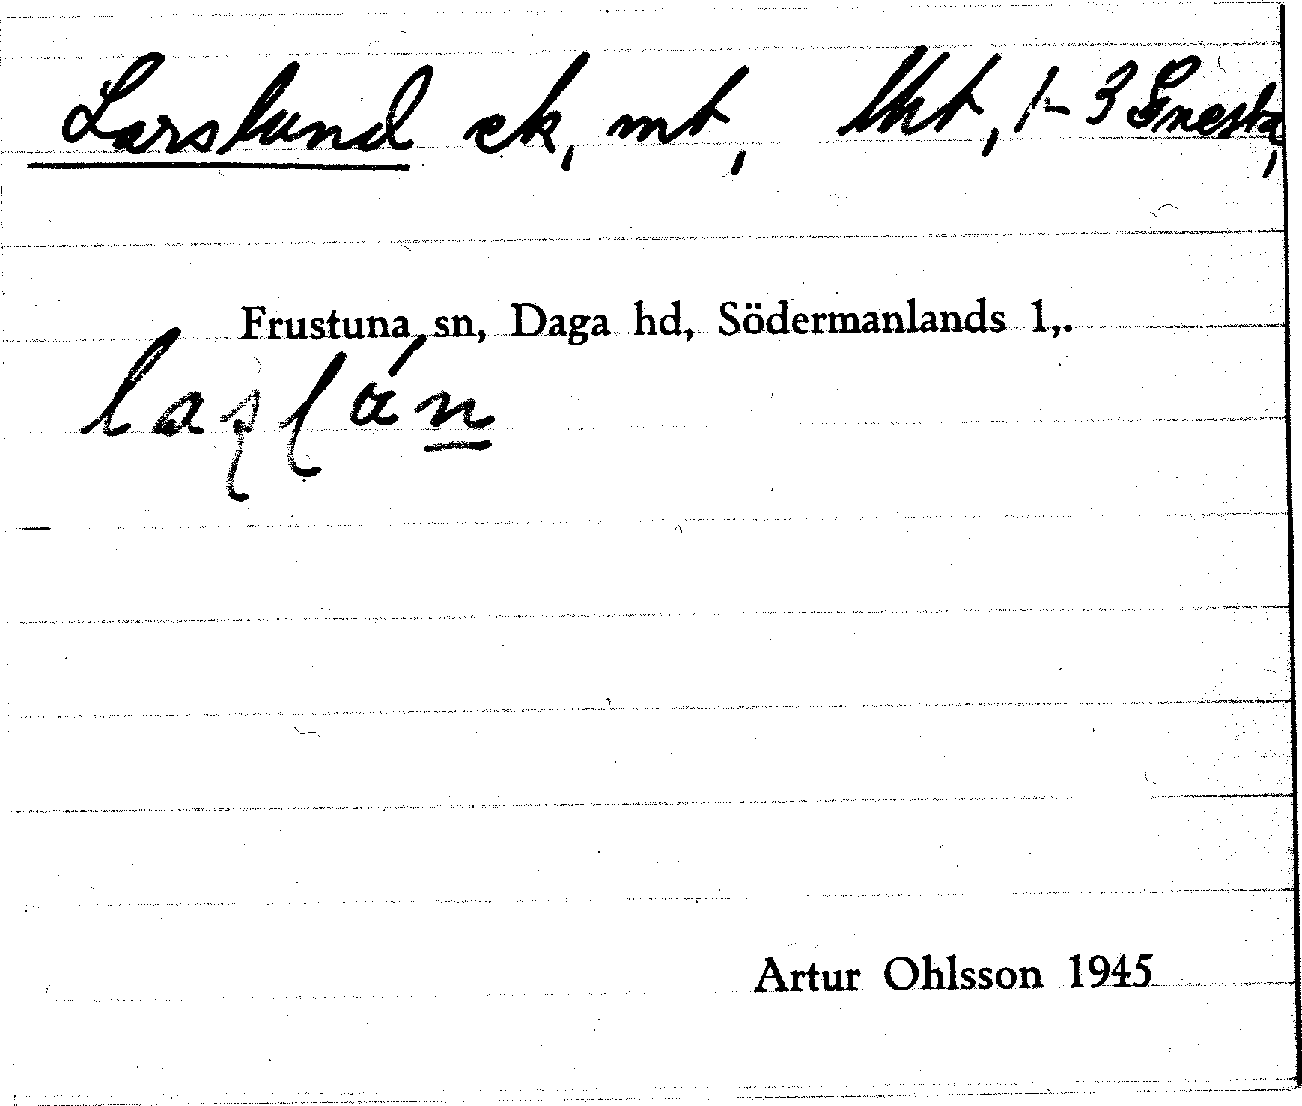 Larslund ek, mt, lht, 1-3 Gnesta,
Frustuna sn, Daga hd, Södermanlands l,.
Artur Ohlsson 1945